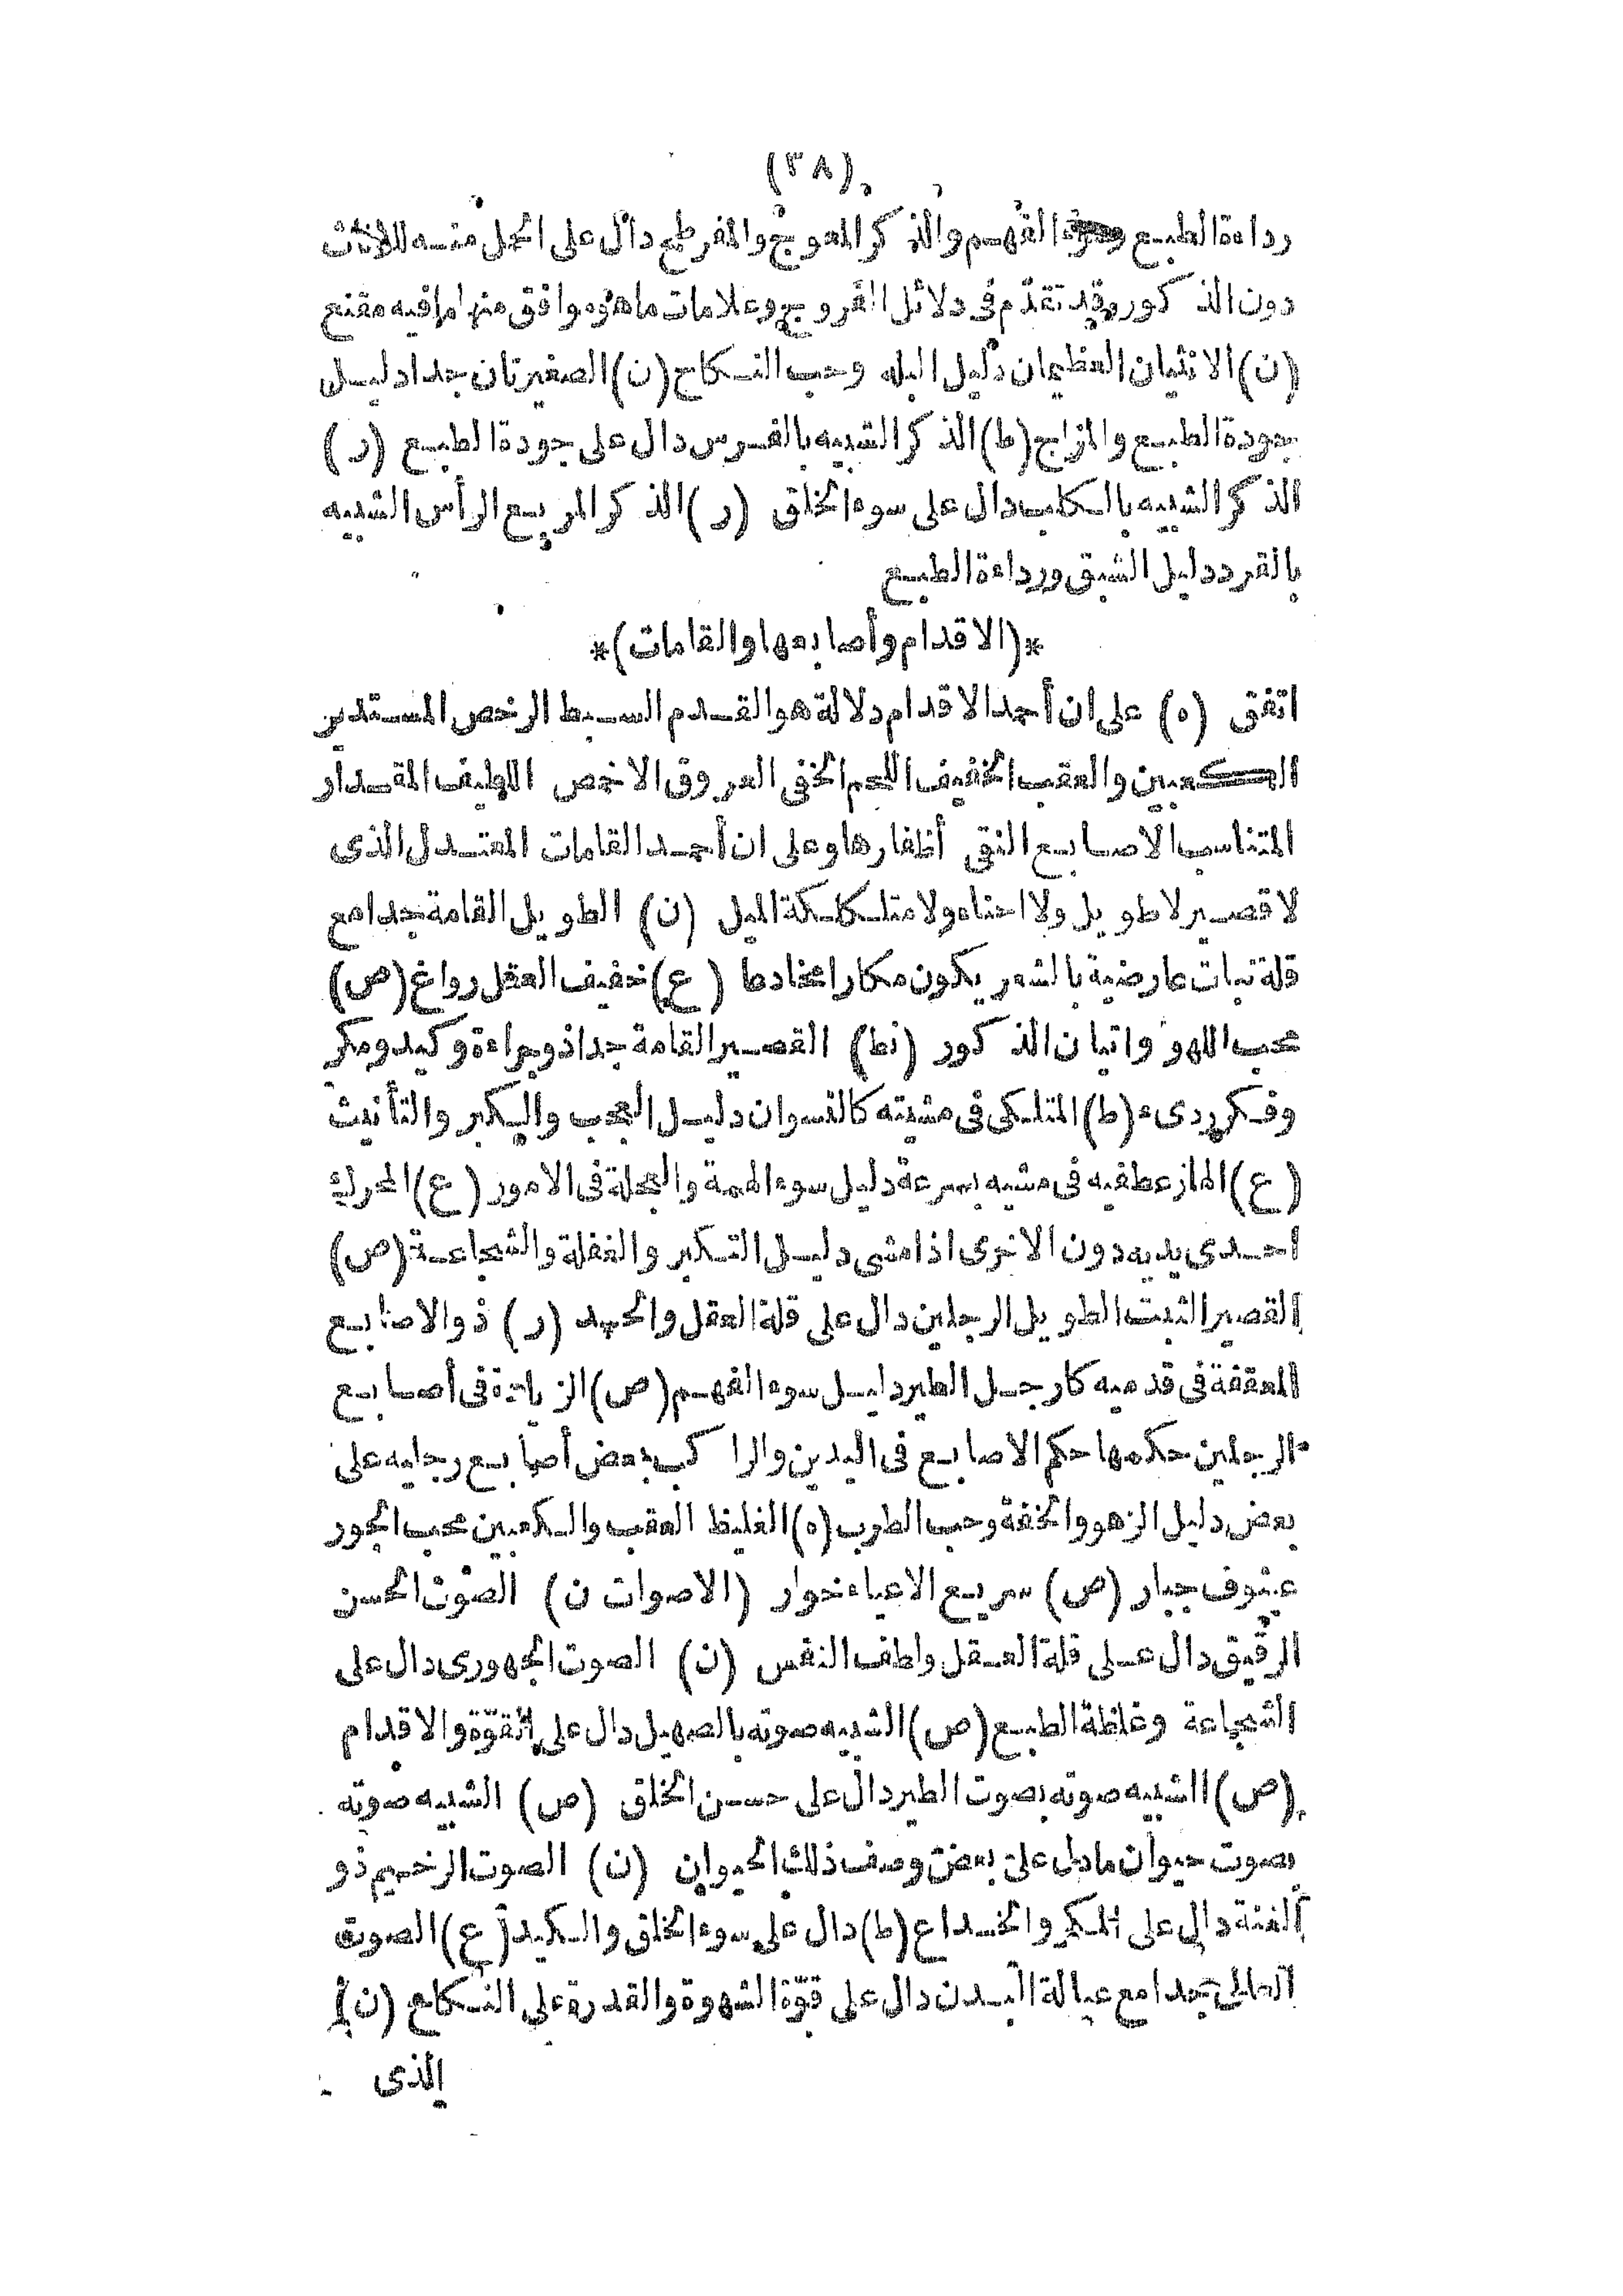 (٣٨)
رداءة الطبع وسوء الفهم والذكر المعوج والمفرطح دال على الحمل منه للاناث
دون الذكور وقد تقدّم فى دلائل الفروج وعلامات ما هو موافق منها ما فيه مقنع
(ن) الانثيان العظيمان دليل البله وحب النكاح (ن) الصغيرتان جدا دليل
جودة الطبع والمزاج (ط) الذكر الشبيه بالفرس دال على جودة الطبع (ر)
الذكر الشبيه بالكلب دال على سوء الخلق (ر) الذكر المربع الرأس الشبيه
بالقرد دليل الشبق ورداءة الطبع
*(الاقدام وأصابعها والقامات)*
اتفق (ه) على ان أحمد الاقدام دلالة هو القدم السبط الرخص المستدير
الكعبين والعقب الخفيف اللحم الخفى العروق الاخمص اللطيف المقدار
المتناسب الاصابع النقى أظفارها وعلى ان أحمد القامات المعتدل الذى
لا قصير لا طويل ولا احناه ولا متلكلكة الميل (ن) الطويل القامة جدا مع
قلة نبات عارضية بالشعر يكون مكارا مخادعا (ع) خفيف العقل رواغ (ص)
محب اللهو واتيان الذكور (نط) القصير القامة جدا ذو جراءة وكيد ومكر
وفكر ردىء (ط) المتلكى فى مشيته كالنسوان دليل العجب والكبر والتأنيث
(ع) الهاز عطفيه فى مشيه بسرعة دليل سوء الهمة والعجلة فى الامور (ع) المحرك
احدى يديه دون الاخرى اذا مشى دليل التكبر والغفلة والشجاعة (ص)
القصير الثبت الطويل الرجلين دال على قلة العقل والحيد (ر) ذو الاصابع
المعقفة فى قدميه كارجل الطير دليل سوء الفهم (ص) الزيادة فى أصابع
الرجلين حكمها حكم الاصابع فى اليدين والراكب بعض أصابع رجليه على
بعض دليل الزهو والخفة وحب الطرب (ه) الغليظ العقب والكعبين محب الجور
عسوف جبار (ص) سريع الاعياء خوار (الاصوات ن) الصوت الحسن
الرقيق دال على قلة العقل ولطف النفس (ن) الصوت الجهورى دال على
الشجاعة وغلظة الطبع (ص) الشبيه صوته بالصهيل دال على القوّة والاقدام
(ص) الشبيه صوته بصوت الطير دال على حسن الخلق (ص) الشبيه صوته
بصوت حيوان ما دل على بعض وصف ذلك الحيوان (ن) الصوت الرخيم ذو
الغنة دال على المكر والخداع (ط) دال على سوء الخلق والكيد (ع) الصوت
العالى جدا مع عبالة البدن دال على قوّة الشهوة والقدرة على النكاح (ن)
الذى